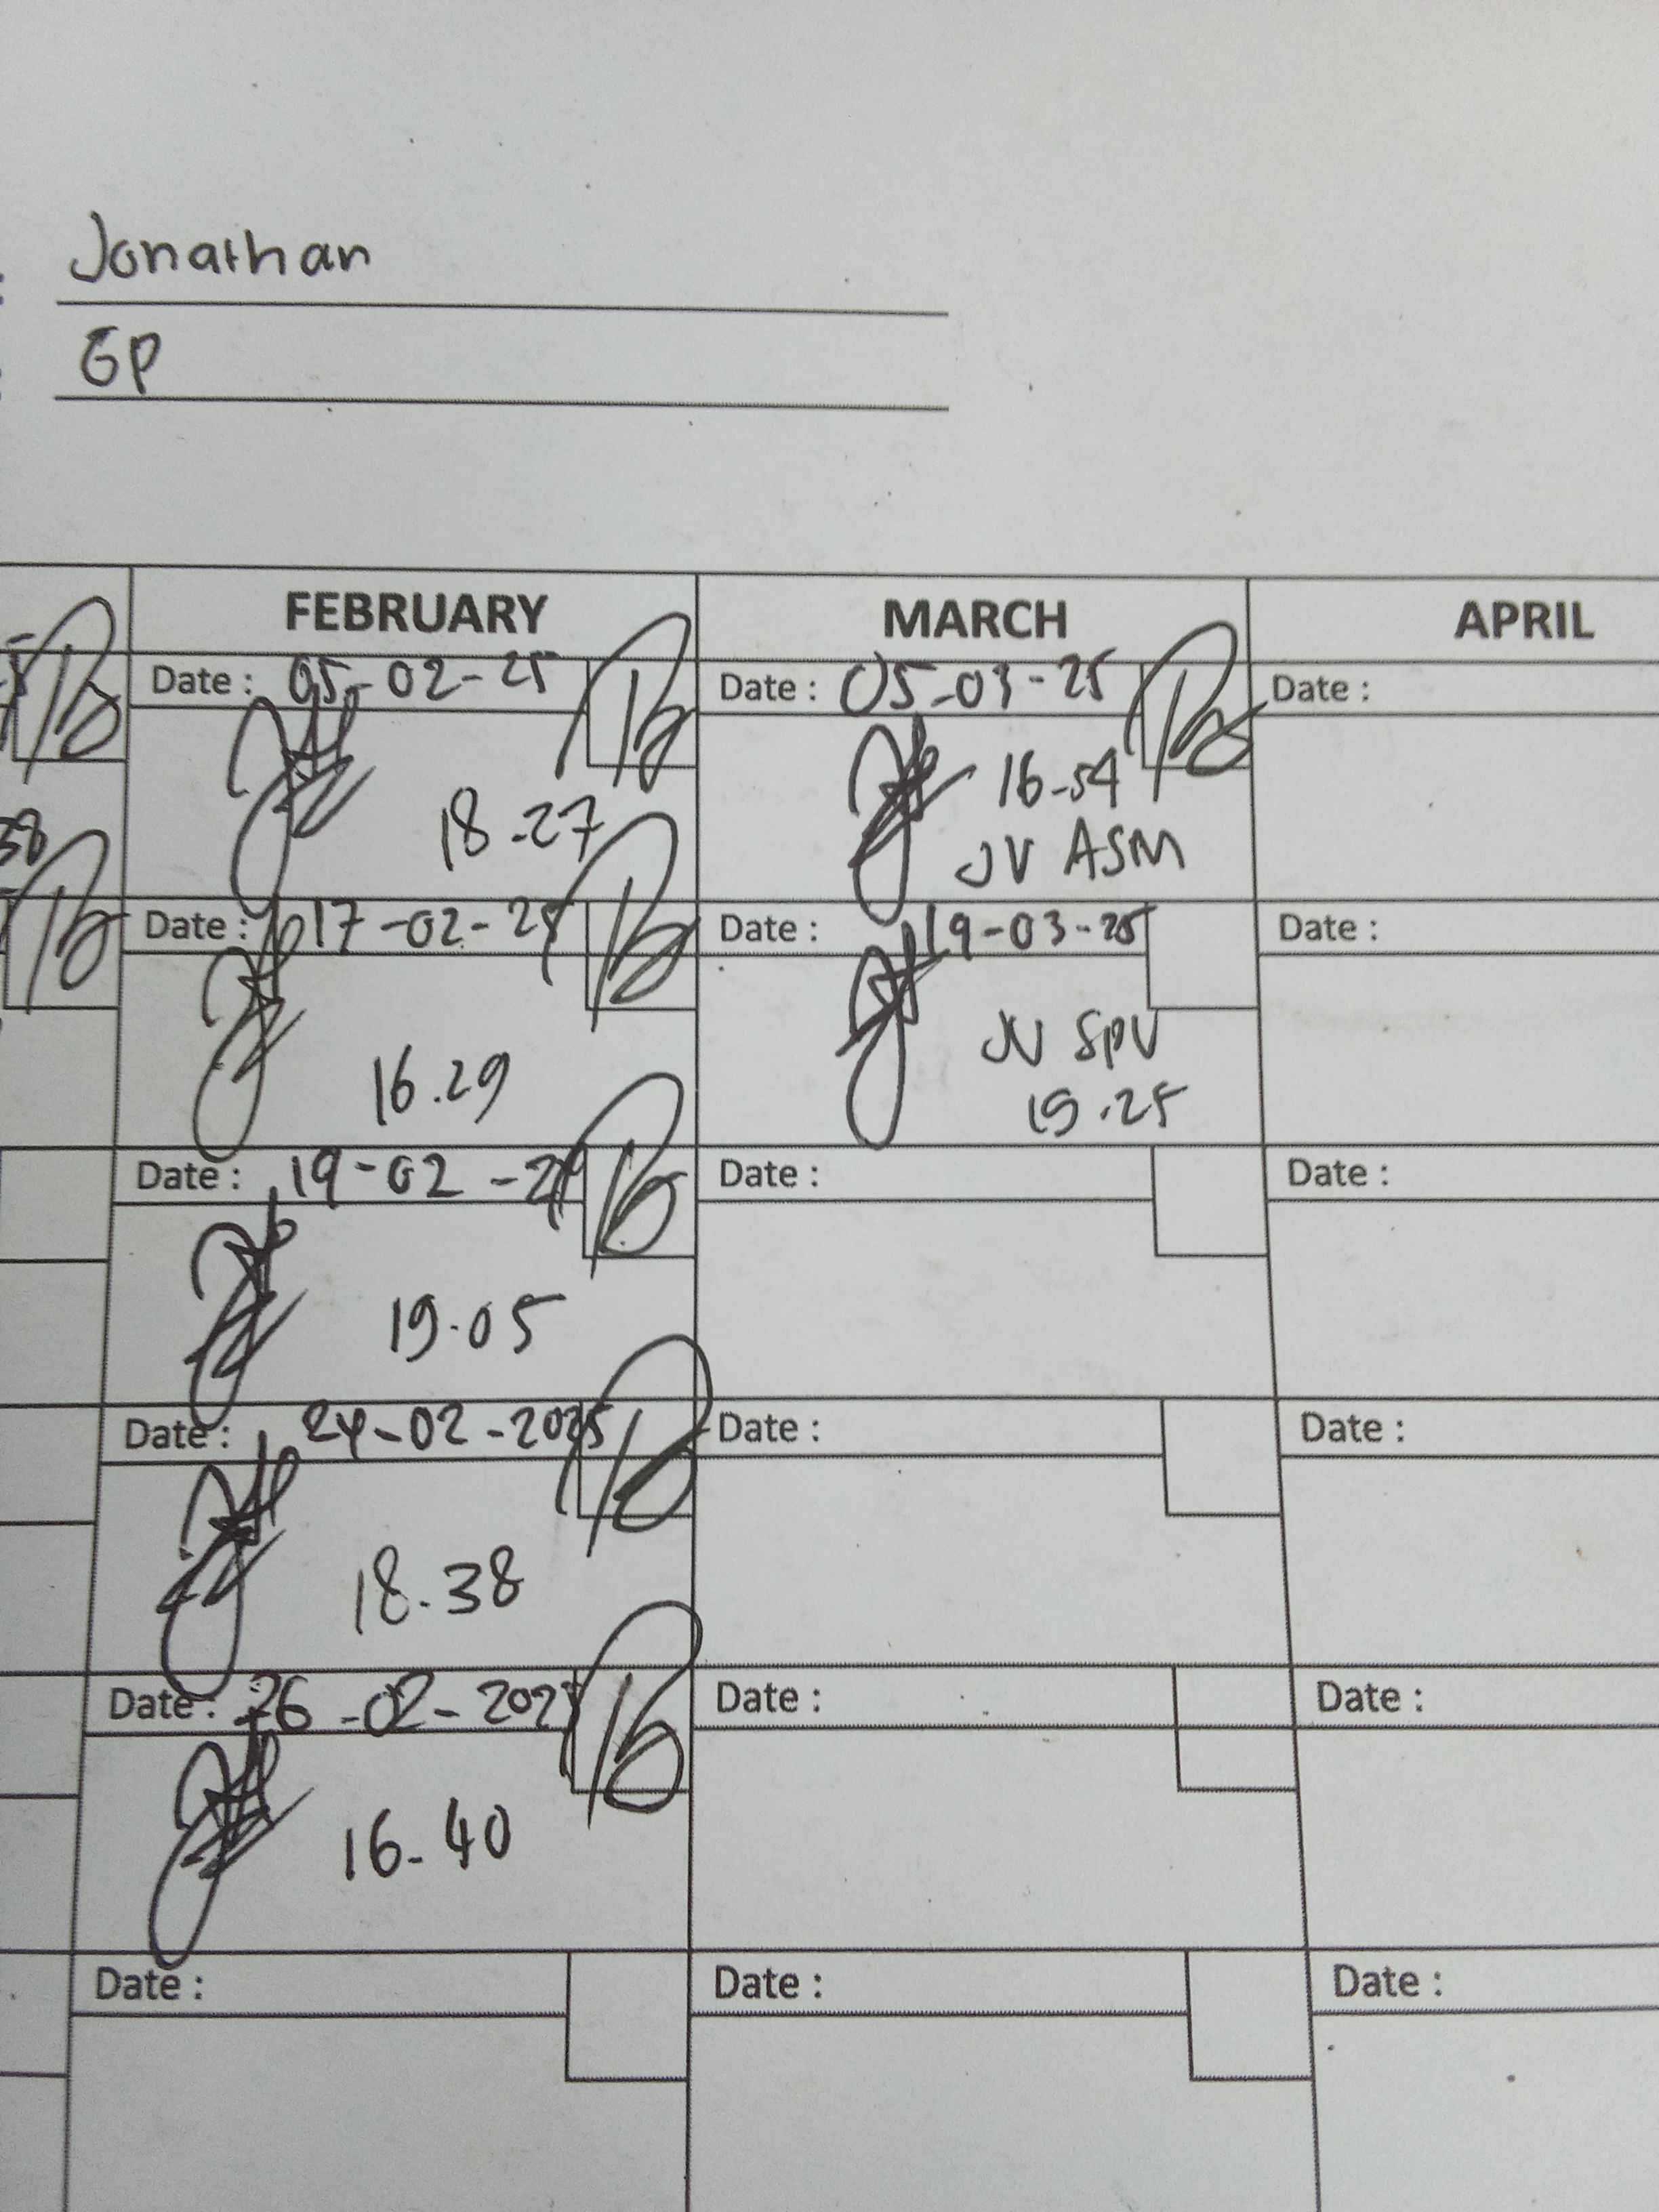 Jonathan
GP
FEBRUARY MARCH APRIL
Date : 05-02-25 Date : 05-03-25 Date :
18-27 16-54
JV ASM
Date : 17-02-25 Date : 19-03-25 Date :
16.29 JV SPV
19.25
Date : 19-02-25 Date : Date :
19.05
Date : 24-02-2025 Date : Date :
18.38
Date : 26-02-2025 Date : Date :
16-40
Date : Date : Date :